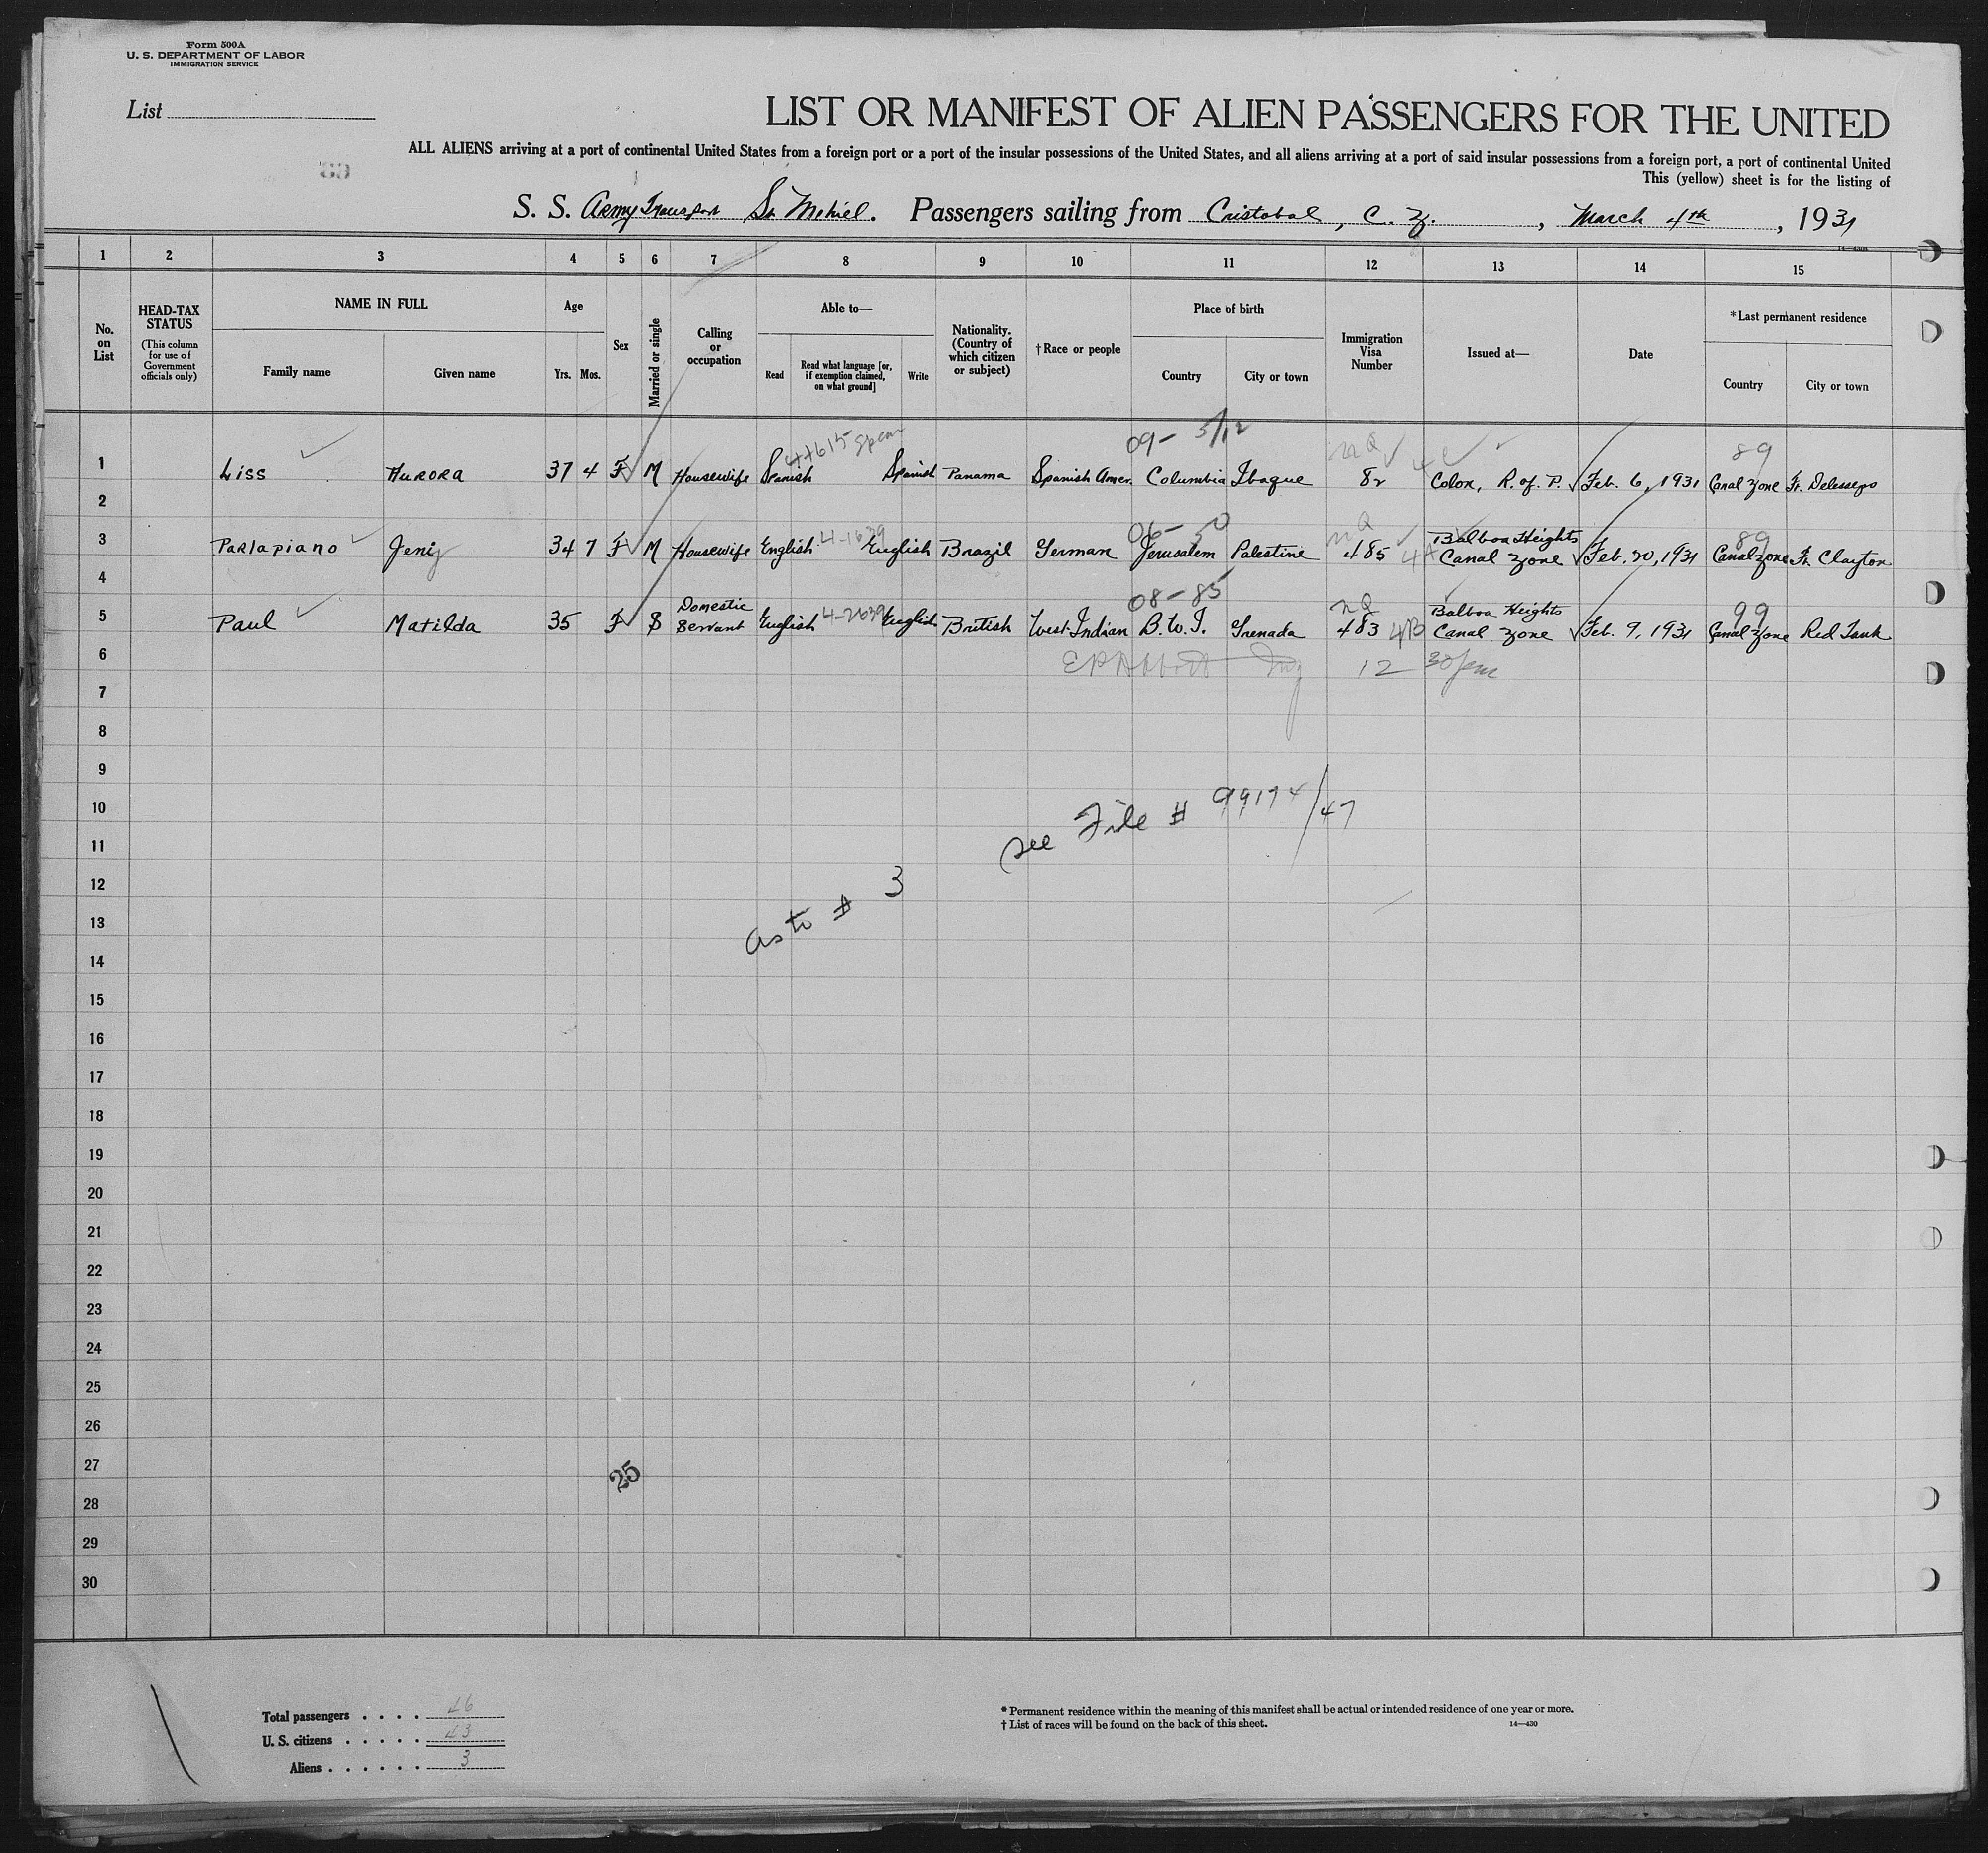 Form 500A
U. S. DEPARTMENT OF LABOR
IMMIGRATION SERVICE
List
LIST OR MANIFEST OF ALIEN PASSENGERS FOR THE UNITED
ALL ALIENS arriving at a port of continental United States from a foreign port or a port of the insular possessions of the United States, and all aliens arriving at a port of said insular possessions from a foreign port, a port of continental United
This (yellow) sheet is for the listing of
S. S. Army Transport St. Mihiel. Passengers sailing from Cristobal, C. Z., March 4th, 1931
1 2 3 4 5 6 7 8 9 10 11 12 13 14 15
No. on List
HEAD-TAX STATUS (This column for use of Government officials only)
NAME IN FULL
Family name Given name
Age
Yrs. Mos.
Sex
Married or single
Calling or occupation
Able to—
Read Read what language [or, if exemption claimed, on what ground] Write
Nationality. (Country of which citizen or subject)
†Race or people
Place of birth
Country City or town
Immigration Visa Number
Issued at—
Date
*Last permanent residence
Country City or town
09- 5/12 89
1 Liss Aurora 37 4 F M Housewife Spanish Spanish Panama Spanish Amer. Columbia Ibague 82 Colon, R. of P. Feb. 6, 1931 Canal Zone Ft. Delesseps
2
06- 50 89
3 Parlapiano Jeniy 34 7 F M Housewife English 4-1639 English Brazil German Jerusalem Palestine 485 4A Balboa Heights Canal Zone Feb. 20, 1931 Canal Zone Ft. Clayton
4
08-85 nQ 99
5 Paul Matilda 35 F S Domestic Servant English 4-2639 English British West-Indian B.W.I. Grenada 483 4B Balboa Heights Canal Zone Feb. 9, 1931 Canal Zone Red Tank
6 12 30 pm
7
8
9
10 see File # 99174/47
11
12 as to # 3
13
14
15
16
17
18
19
20
21
22
23
24
25
26
27 25
28
29
30
Total passengers . . . . 46
U. S. citizens . . . . . 43
Aliens . . . . . . 3
* Permanent residence within the meaning of this manifest shall be actual or intended residence of one year or more.
† List of races will be found on the back of this sheet. 14—430